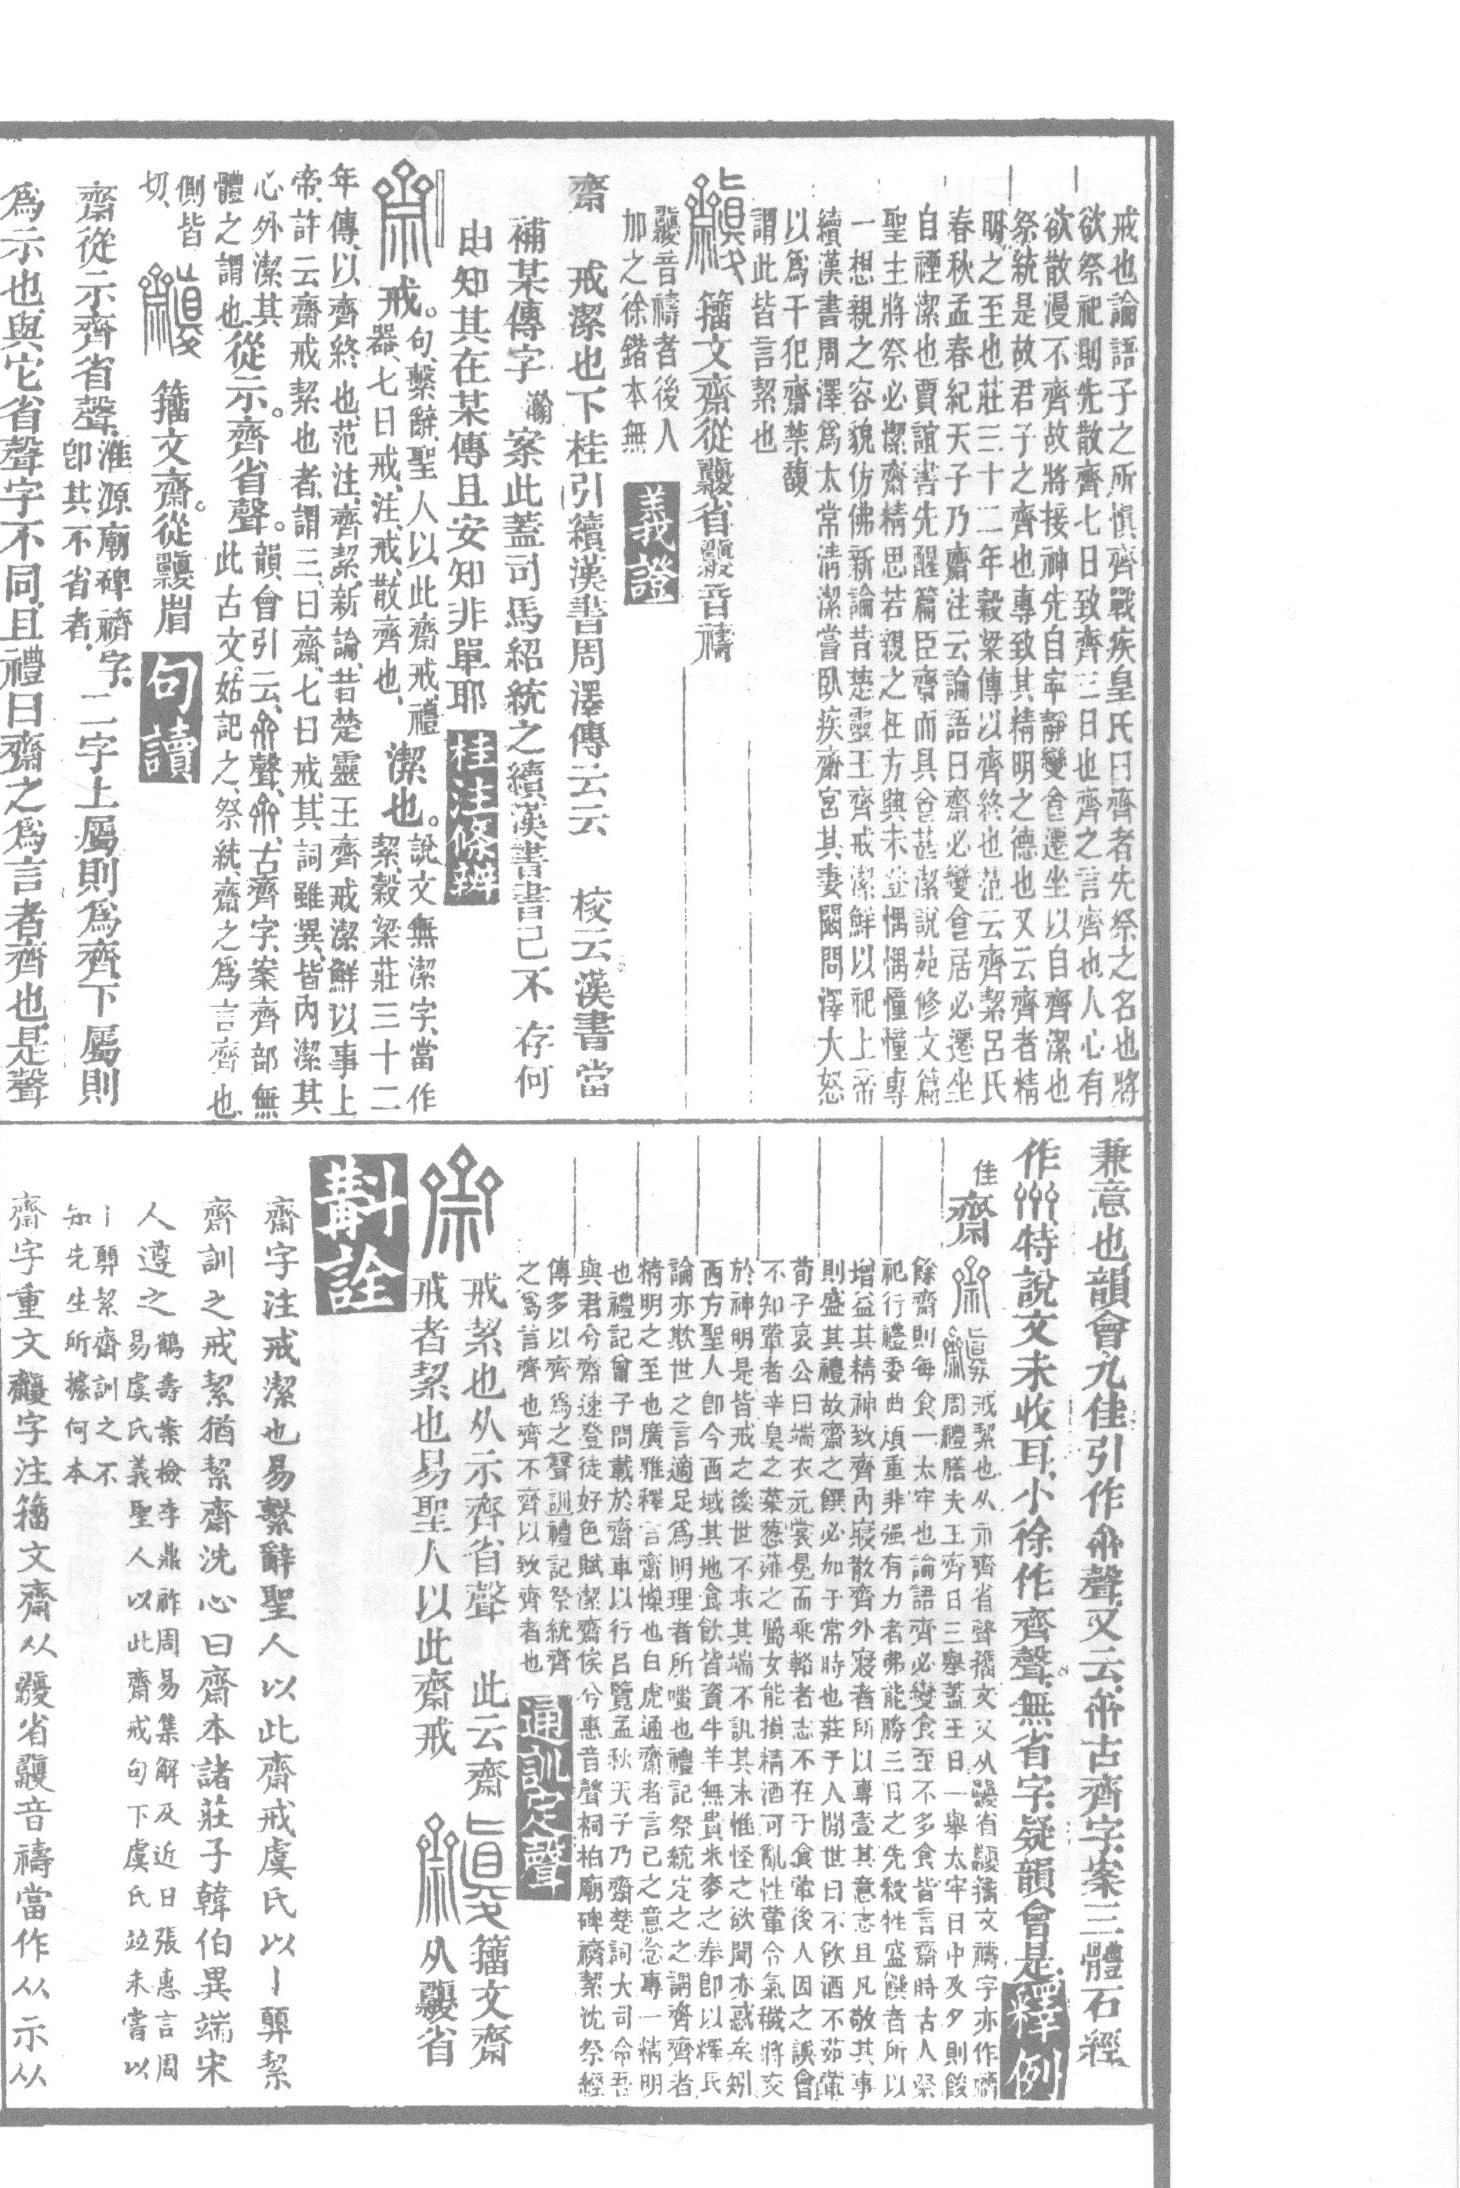 戒也論語子之所愼齊戰疾皇氏曰齊者先祭之名也將
欲祭祀則先散齊七日致齊三日也齊之言齊也人心有
欲散漫不齊故將接神先自寧靜變食遷坐以自齊潔也
祭統是故君子之齊也專致其精明之德也又云齊者精
明之至也莊三十二年穀梁傳以齊終也范云齊絜呂氏
春秋孟春紀天子乃齋注云論語曰齋必變食居必遷坐
自禋潔也賈誼書先醒篇臣齊而具食甚潔說苑修文篇
聖主將祭必潔齋精思若親之在方興未登惆惆憧憧專
一想親之容貌仿佛新論昔楚靈王齊戒潔鮮以祀上帝
續漢書周澤爲太常清潔嘗臥疾齋宮其妻闚問澤大怒
以爲干犯齋禁馥
謂此皆言絜也
籒文齋從䶒省䶒音禱
䶒音禱者後人
加之徐鍇本無
義證
齋 戒潔也下桂引續漢書周澤傳云云 校云漢書當
補某傳字 瀚案此蓋司馬紹統之續漢書書已不存何
由知其在某傳且安知非單耶 桂注修辨
戒。句繫辭聖人以此齋戒禮
器七日戒注戒散齊也 潔也。說文無潔字當作
絜穀梁莊三十二
年傳以齊終也范注齊絜新論昔楚靈王齊戒潔鮮以事上
帝許云齋戒絜也者謂三日齋七日戒其詞雖異皆內潔其
心外潔其
體之謂也 從示齊省聲。韻會引云聲古齊字案齊部無
此古文姑記之祭統齋之爲言齊也
側皆
切 籒文齋從䶒省 句讀
齋從示齊省聲 淮源廟碑禱字
卽其不省者 二字上屬則爲齊下屬則
爲示也與它省聲字不同且禮曰齋之爲言者齊也是聲
兼意也韻會九佳引作聲又云古齊字案三體石經
作特說文未收耳小徐作齊聲無省字疑韻會是 釋例
佳
齋 戒絜也从示齊省聲籒文从䶒省䶒籒文禱字亦作
周禮膳夫王齊日三舉蓋王日一舉太牢日中及夕則餕
餘齊則每食一太牢也論語齊必變食至不多食皆言齋時古人祭
祀行禮委曲煩重非强有力者弗能勝三日之先殺牲盛饌者所以
增益其精神致齊內寢散齊外寢者所以專壹其意志且凡敬其事
則盛其禮故齋之饌必加于常時也莊子人閒世曰不飮酒不茹葷
荀子哀公曰端衣元裳冕而乘輅者志不在于食葷後人因之誤會
不知葷者辛臭之菜蔥薤之屬女能損精酒可亂性葷令氣穢將交
於神明是皆戒之後世不求其端不訊其末惟怪之欲聞亦惑矣矧
西方聖人卽今西域其地食飮皆資牛羊無貴米麥之奉卽以釋氏
論亦欺世之言適足爲明理者所嗤也禮記祭統定之之謂齊齊者
精明之至也廣雅釋言齋㦗也白虎通齋者言已之意念專一精明
也禮記曾子問載於齋車以行呂覽孟秋天子乃齋楚詞大司命吾
與君兮齋速登徒好色賦潔齋俟兮惠音聲桐柏廟碑禱絜沈祭經
傳多以齊爲之聲訓禮記祭統齊
之爲言齊也齊不齊以致齊者也 通訓定聲
戒絜也从示齊省聲 此云齋
戒者絜也易聖人以此齋戒 籒文齋
从䶒省
斠詮
齋字注戒潔也易繫辭聖人以此齋戒虞氏以丨羿絜
齋訓之戒絜猶絜齋洗心曰齋本諸莊子韓伯異端宋
人遵之 鶴壽案檢李鼎祚周易集解及近日張惠言周
易虞氏義聖人以此齋戒句下虞氏竝未嘗以
丨羿絜齊訓之不
知先生所據何本
齋字重文䶒字注籒文齋从䶒省䶒音禱當作从示从